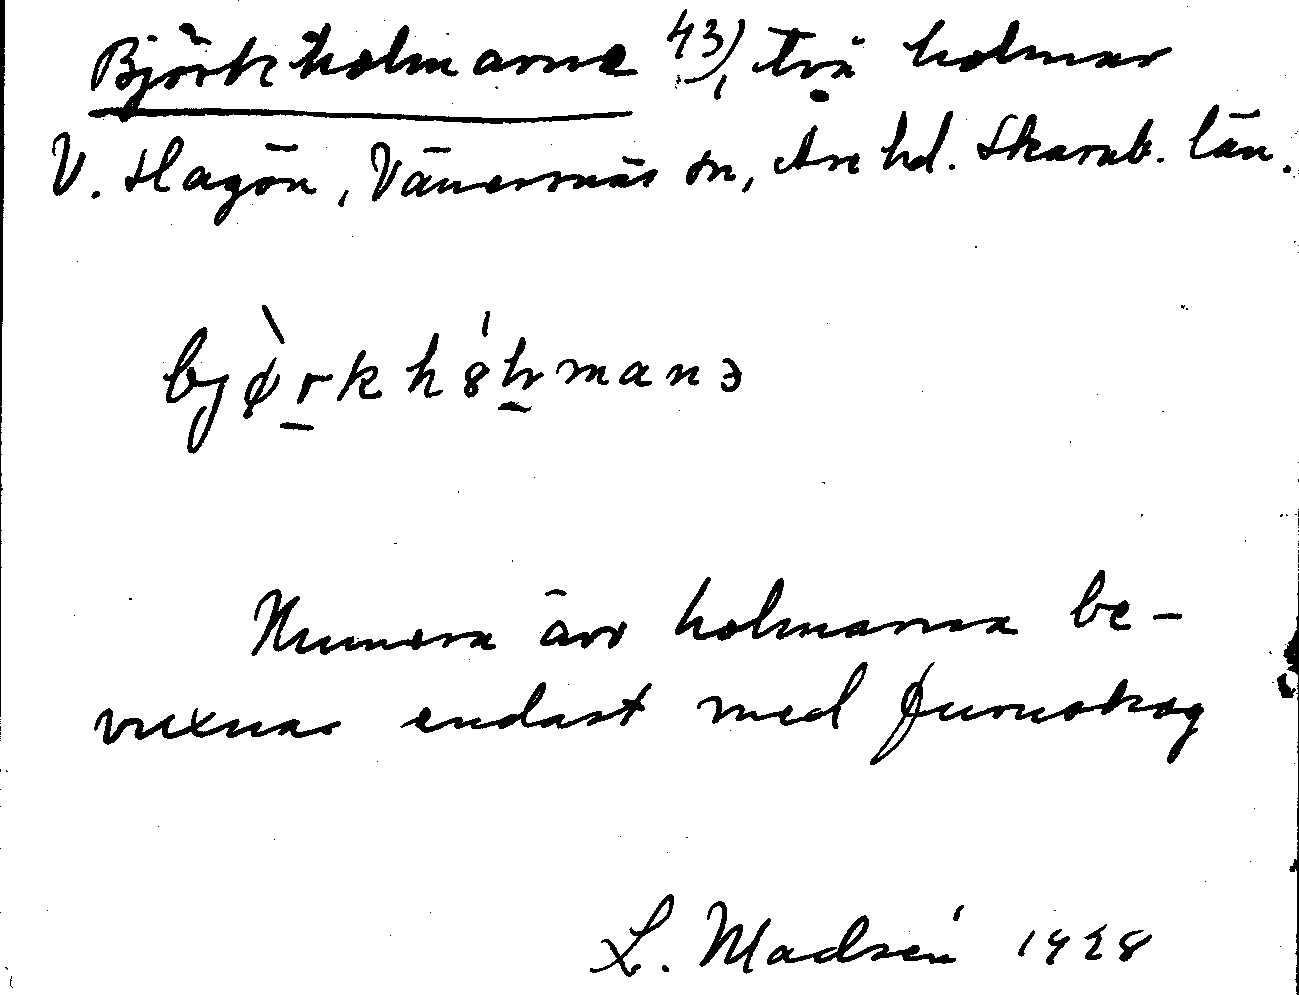 Björkholmarne 43), två holmar
V. Hagön, Vänersnäs sn, Åse hd. Skarab. län.
bjø̀rkhó̤lmanə
Numera äro holmarna be-
vuxnar endast med furuskog
L. Madsén 1928